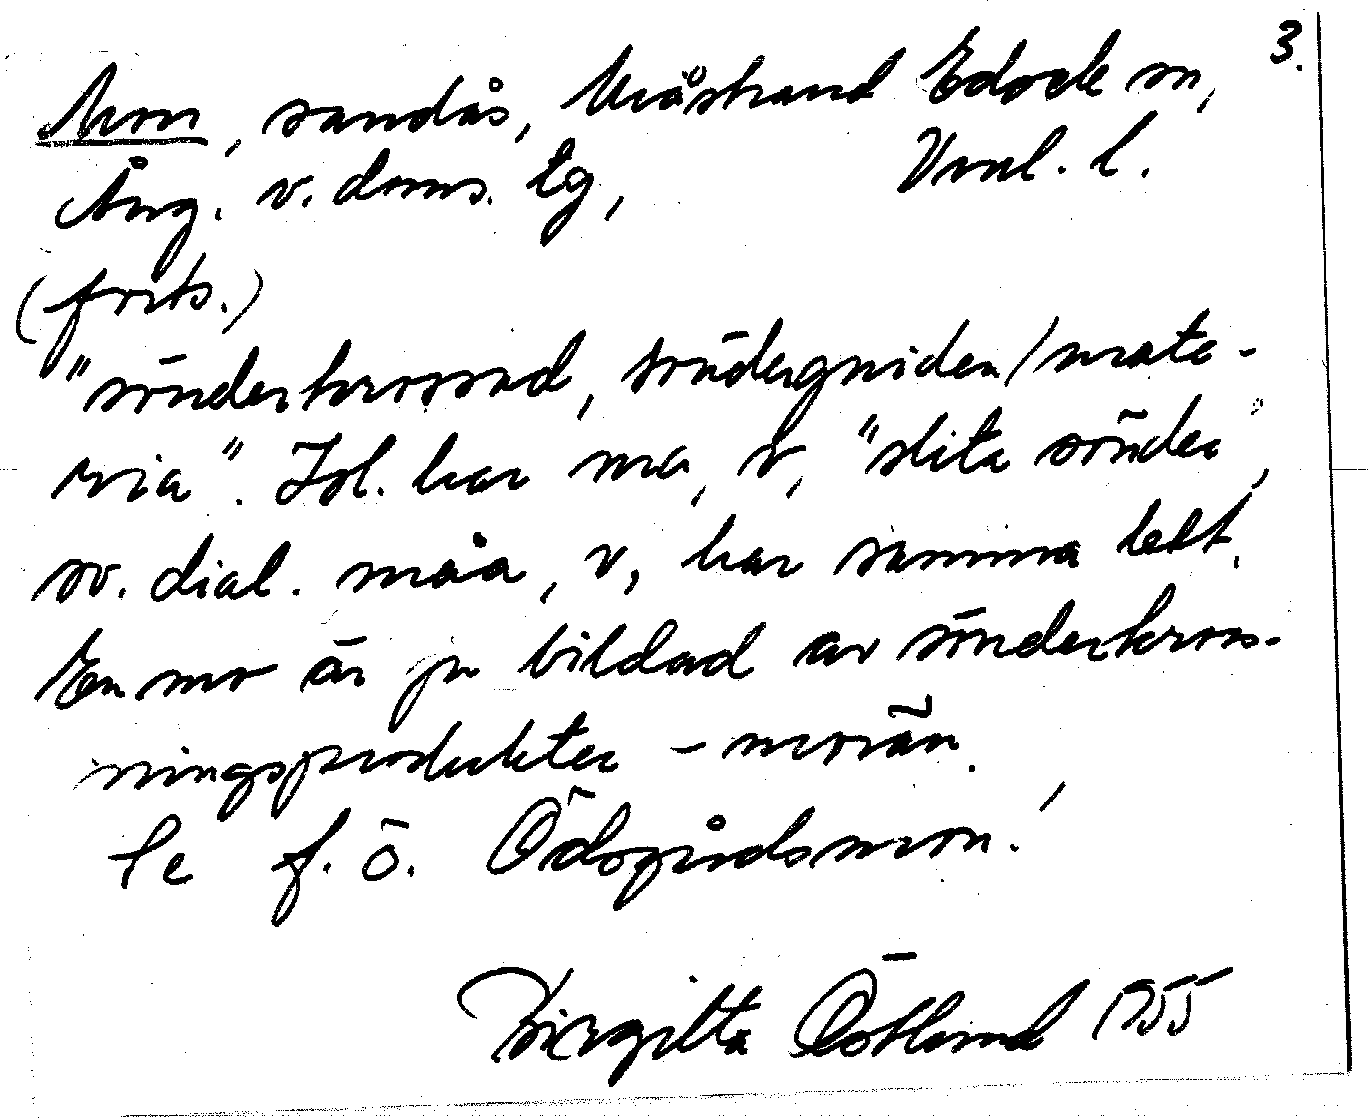 3.
Mon, sandås, Måstrand Edsele sn,
Ång. v. doms. lg, Vnl. l.
(forts.)
"sönderkrossad, söndergniden/mate-
ria". Isl. har má, v, "slita sönder",
sv. dial. måa, v, har samma bet.
En mo är ju bildad av sönderkross-
ningsprodukter - morän.
Se f. ö. Ödsgårdsmon.
Birgitta Östlund 1955